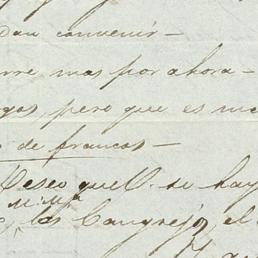 dan convenir—
rre, mas por ahora—
gos, pero que es
de francos—
Deseo que V. se hay
los Cangrejo, el